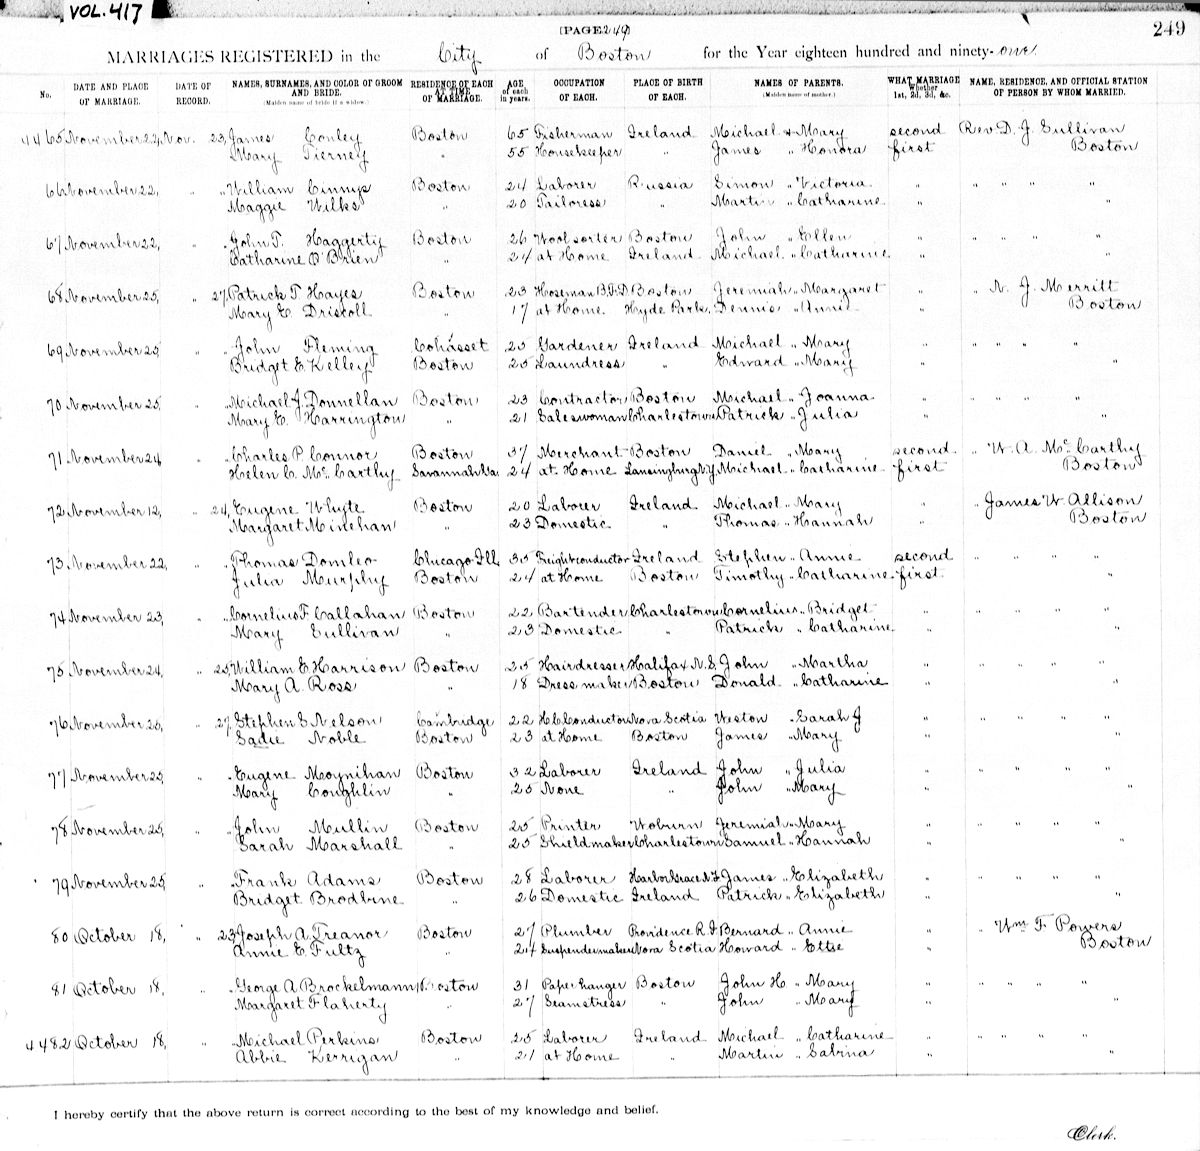 VOL. 417
(PAGE 249)
249
MARRIAGES REGISTERED in the City of Boston for the Year eighteen hundred and ninety-one.
No. DATE AND PLACE OF MARRIAGE. DATE OF RECORD. NAMES, SURNAMES, AND COLOR OF GROOM AND BRIDE. (Maiden name of bride if a widow.) RESIDENCE OF EACH AT TIME OF MARRIAGE. AGE of each in years. OCCUPATION OF EACH. PLACE OF BIRTH OF EACH. NAMES OF PARENTS. (Maiden name of mother.) WHAT MARRIAGE Whether 1st, 2d, 3d, &c. NAME, RESIDENCE, AND OFFICIAL STATION OF PERSON BY WHOM MARRIED.
4465 November 22, Nov. 23, James Conley Boston 65 Fisherman Ireland Michael & Mary second Rev D. J. Sullivan
Mary Tierney " 55 Housekeeper " James " Honora first Boston
66 November 22, " " William Cinnys Boston 24 Laborer Russia Simon " Victoria " " " " "
Maggie Wilks " 20 Tailoress " Martin " Catharine " "
67 November 22, " " John T. Haggerty Boston 26 Wool sorter Boston John " Ellen " " " " "
Catharine O'Brien " 24 at Home Ireland Michael " Catharine " "
68 November 25, " 27, Patrick T. Hayes Boston 23 Hoseman B.F.D. Boston Jeremiah " Margaret " " N. J. Merritt
Mary E. Driscoll " 17 at Home. Hyde Park, Dennis " Annie " Boston
69 November 25 " " John Fleming Cohasset 25 Gardener Ireland Michael " Mary " " " " "
Bridget E. Kelley Boston 25 Laundress " Edward " Mary " "
70 November 25, " " Michael J. Donnellan Boston 23 Contractor Boston Michael " Joanna " " " " "
Mary E. Harrington " 21 Saleswoman Charlestown Patrick " Julia " "
71 November 24 " " Charles P. Connor Boston 37 Merchant Boston Daniel " Mary second " W. A. McCarthy
Helen C. McCarthy Savannah Ga. 24 at Home Lansingburg N.Y. Michael " Catharine first Boston
72 November 12, " 24, Eugene Whyte Boston 20 Laborer Ireland Michael " Mary " " James W. Allison
Margaret Minehan " 23 Domestic " Thomas " Hannah " Boston
73 November 22, " " Thomas Domleo Chicago Ill 35 Freight conductor Ireland Stephen " Annie second " " " "
Julia Murphy Boston 24 at Home Boston Timothy " Catharine first "
74 November 23, " " Cornelius F. Callahan Boston 22 Bartender Charlestown Cornelius " Bridget " " " " "
Mary Sullivan " 23 Domestic " Patrick " Catharine " "
75 November 24, " 25, William E. Harrison Boston 25 Hairdresser Halifax N.S. John " Martha " " " " "
Mary A. Ross " 18 Dressmaker Boston Donald " Catharine " "
76 November 25, " 27, Stephen S. Nelson Cambridge 22 H.C. Conductor Nova Scotia Weston " Sarah J " " " " "
Sadie Noble Boston 23 at Home Boston James " Mary " "
77 November 25, " " Eugene Moynihan Boston 32 Laborer Ireland John " Julia " " " " "
Mary Coughlin " 25 None " John " Mary " "
78 November 25, " " John Mullin Boston 25 Printer Woburn Jeremiah " Mary " " " " "
Sarah Marshall " 25 Shieldmaker Charlestown Samuel " Hannah " "
79 November 25, " " Frank Adams Boston 28 Laborer Harbor Grace N.F. James " Elizabeth " " " " "
Bridget Brodbine " 26 Domestic Ireland Patrick " Elizabeth " "
80 October 18, " 23, Joseph A. Treanor Boston 27 Plumber Providence R.I. Bernard " Annie " " Wm. F. Powers
Annie E. Fultz " 24 Suspendermaker Nova Scotia Howard " Ettie " Boston
81 October 18, " " George A. Brockelmann Boston 31 Paperhanger Boston John H. " Mary " " " " "
Margaret Flaherty " 27 Seamstress " John " Mary " "
4482 October 18, " " Michael Perkins Boston 25 Laborer Ireland Michael " Catharine " " " " "
Abbie Kerrigan " 21 at Home " Martin " Sabina " "
I hereby certify that the above return is correct according to the best of my knowledge and belief.
Clerk.